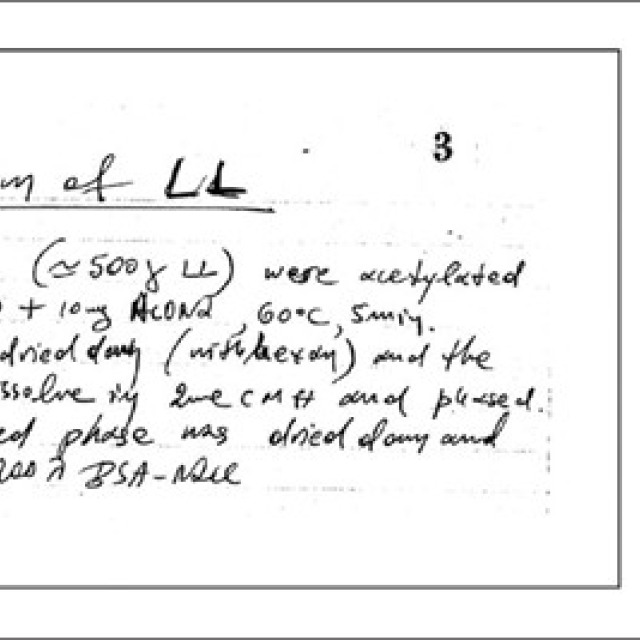 3
of LL
(≈500γ LL) were acetylated
+ 10mg AcONa, 60°C, 5min.
dried down (with hexan) and the
ssolve in 2me CMH and phased.
ed phase was dried down and
200 λ BSA-